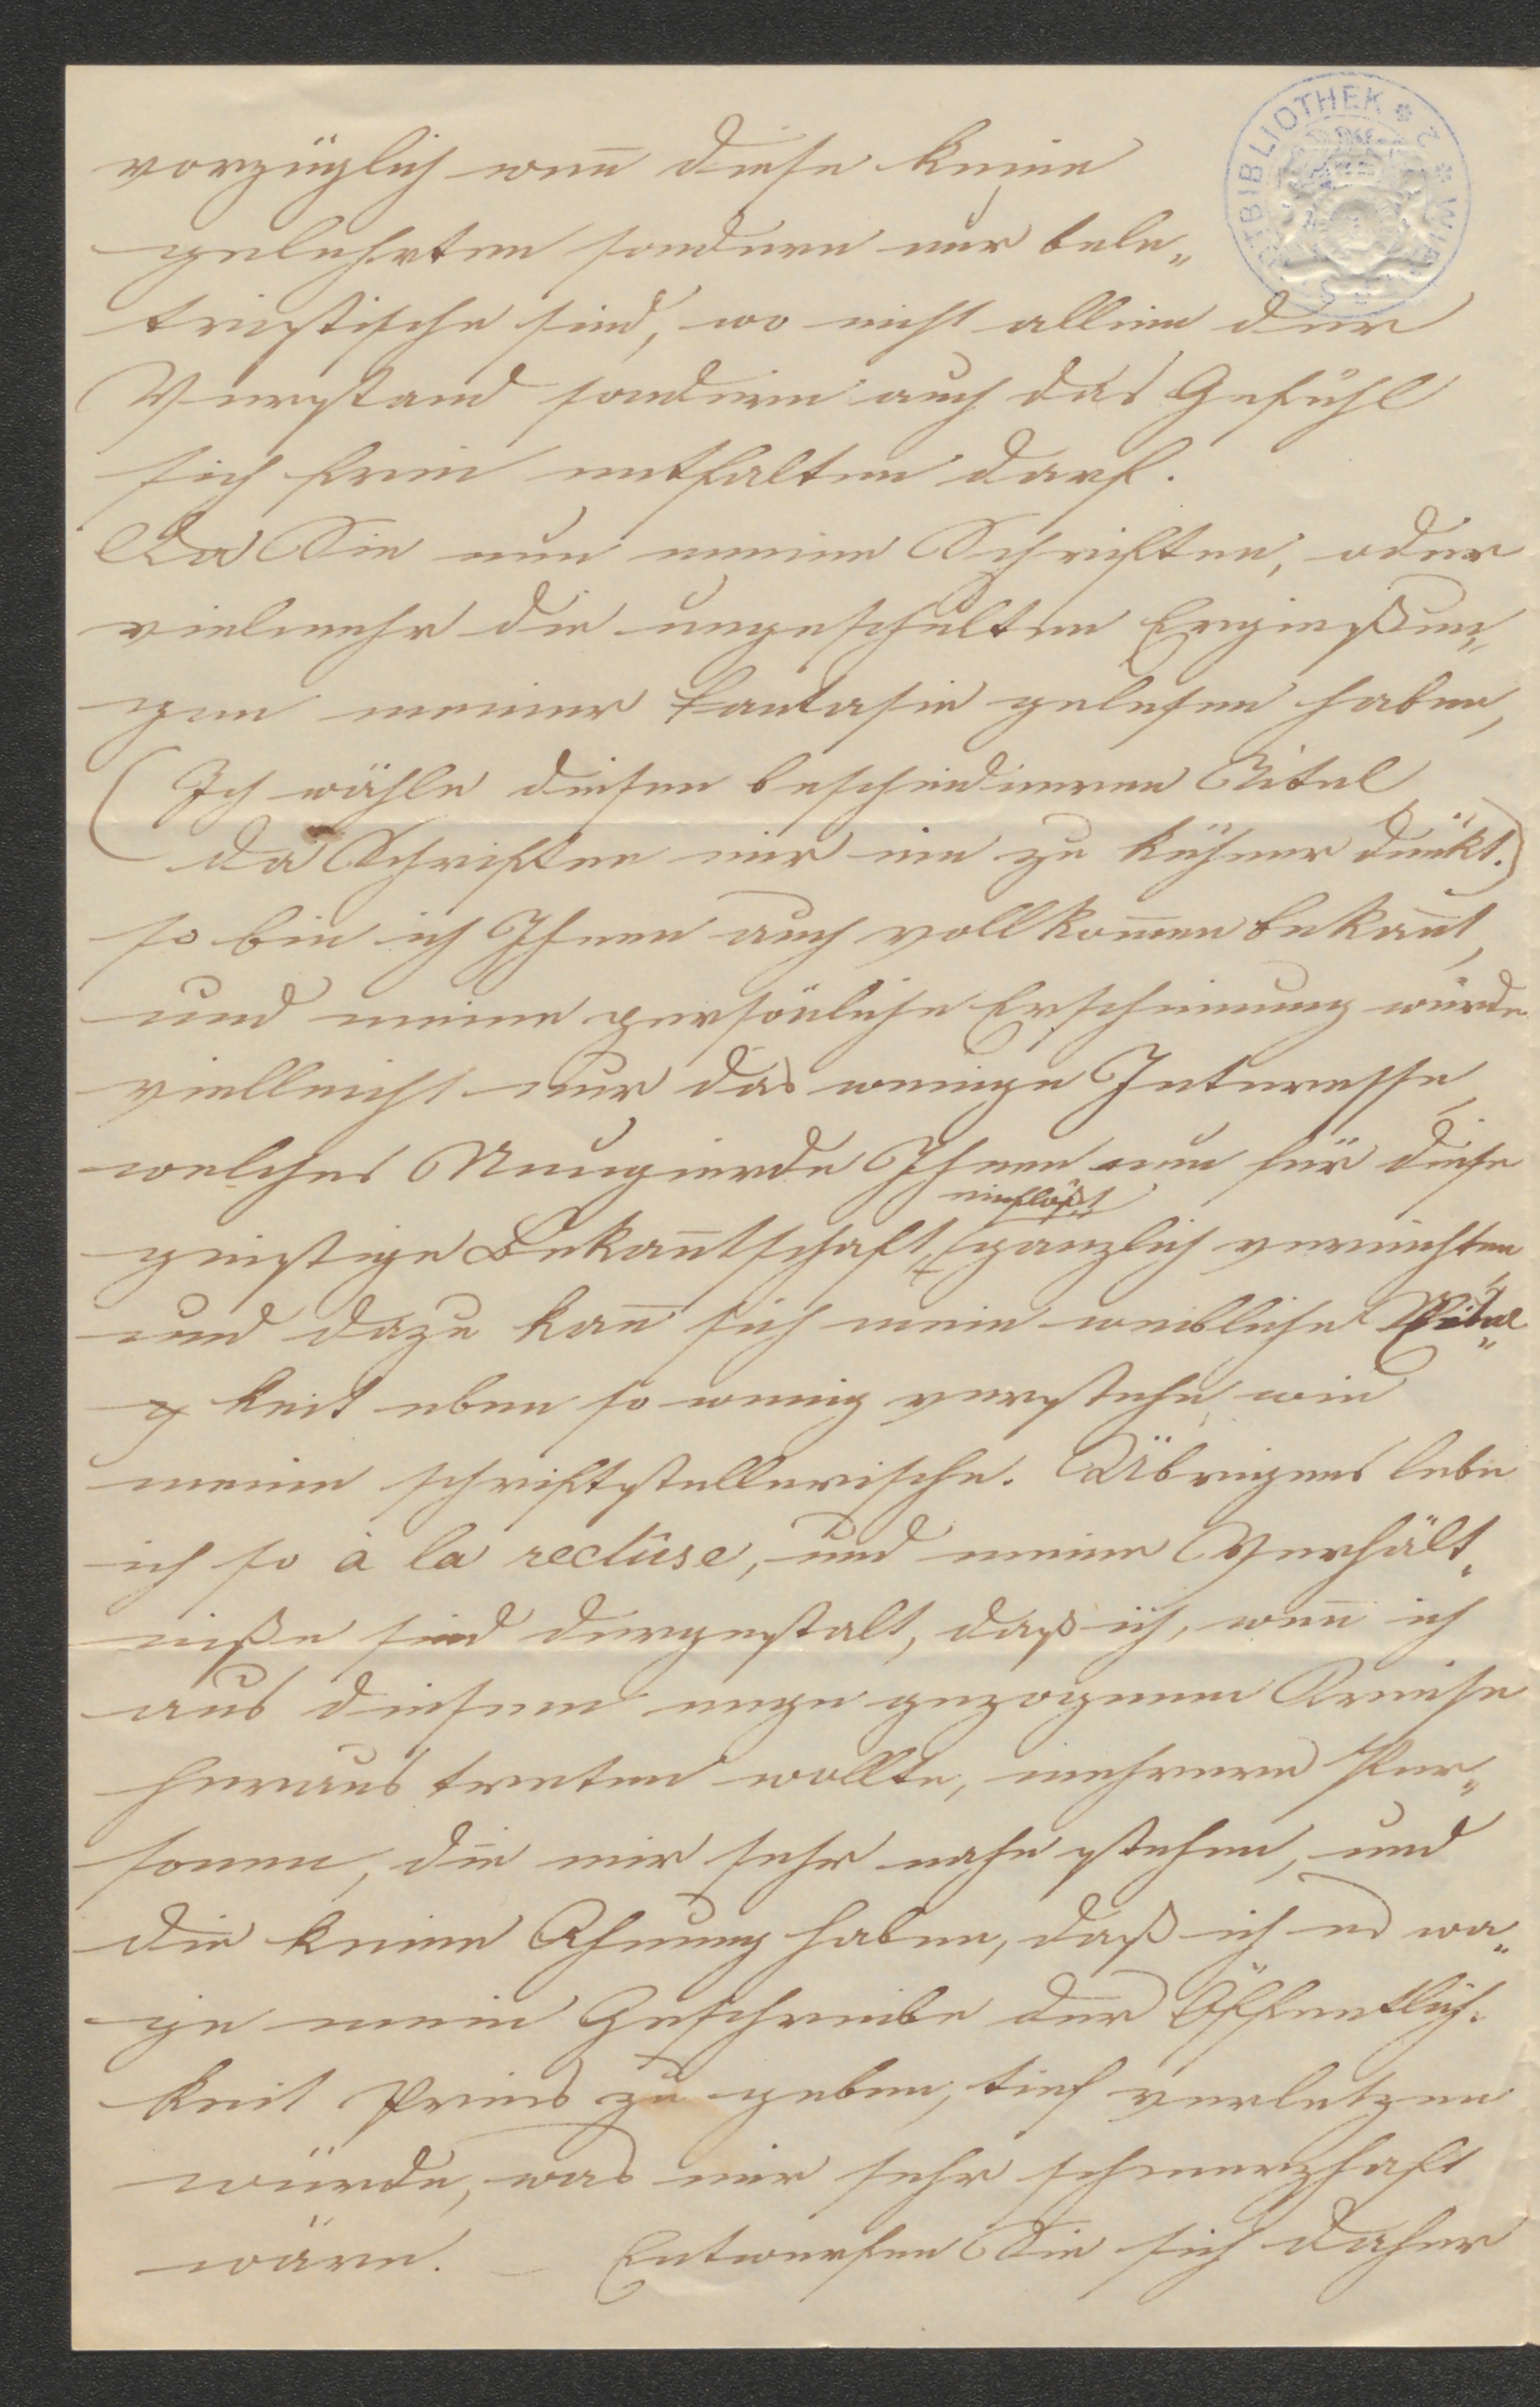 vorzüglich weñ diese keine
gelehrten sondern nur bele„
tristische sind, wo nicht allein der
Verstand sondern auch das Gefühl
sich frei entfalten darf.
Da Sie nun meine Schriften, oder
vielmehr die ungeschulten Ergießun„
gen meiner Fantasie gelesen haben,
(Ich wähle diesen bescheideneren Titel
da Schriften mir ein zu kühner dünkt.)
so bin ich Ihnen auch vollkom̄en bekan̄t,
und meine persönliche Erscheinung würde
vielleicht nur das wenige Interesse,
welches Neugierde Ihnen nun für diese
einflößt
geistige Bekan̄tschaft, gänzlich vernichten
und dazu kan̄ sich meine weibliche Eitel„
keit eben so wenig verstehen, wie
meine schriftstellerische. Übrigens lebe
ich so à la recluse, und meine Verhält„
niße sind dergestalt, daß ich, weñ ich
aus diesem enge gezogenen Kreise
heraus treten wollte, mehrere Per„
sonen, die mir sehr nahe stehen, und
die keine Ahnung haben, daß ich es wa„
ge mein Geschreibe der Öffentlich„
keit Preis zu geben, tief verletzen
würde, was mir sehr schmerzhaft
wäre. – Entwerfen Sie sich daher
BIBLIOTHEK * WIEN